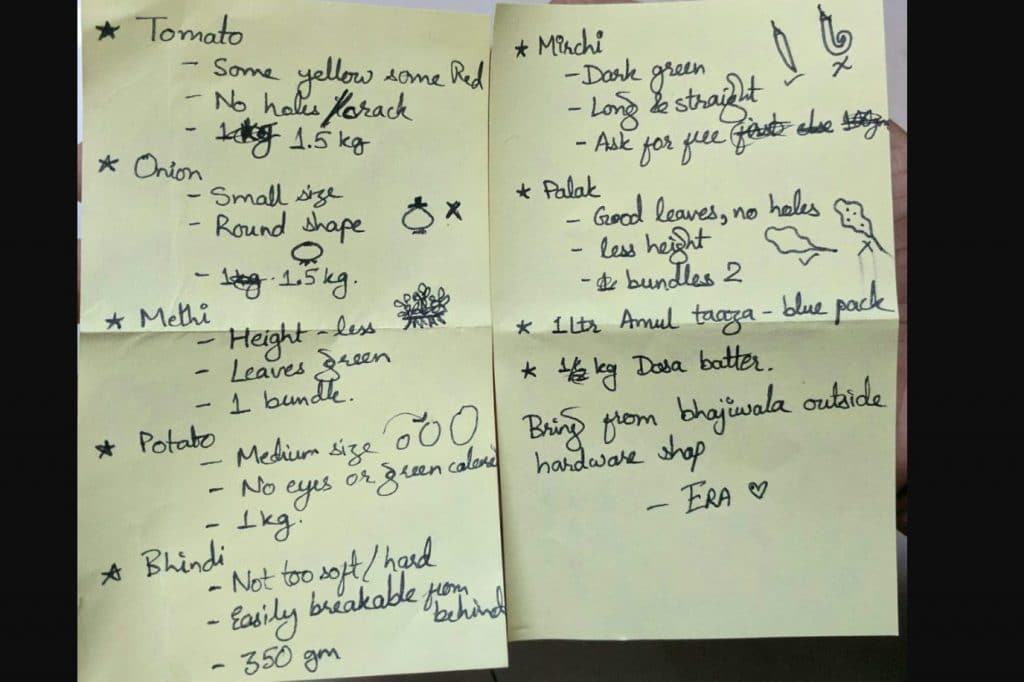 ★ Tomato
- Some yellow some Red
- No holes/crack
- 1.5 kg
★ Onion
- Small size
- Round shape
- 1kg 1.5 kg.
★ Methi
- Height - less
- Leaves green
- 1 bundle.
★ Potato
- Medium size
- No eyes or green colored
- 1 kg.
★ Bhindi
- Not too soft/hard
- Easily breakable from
behind
- 350 gm
★ Mirchi
- Dark green
- Long & straight
- Ask for free
★ Palak
- Good leaves, no holes
- less height
- bundles 2
★ 1 Ltr Amul taaza - blue pack
★ kg Dosa batter.
Bring from bhajiwala outside
hardware shop
- ERA ♡